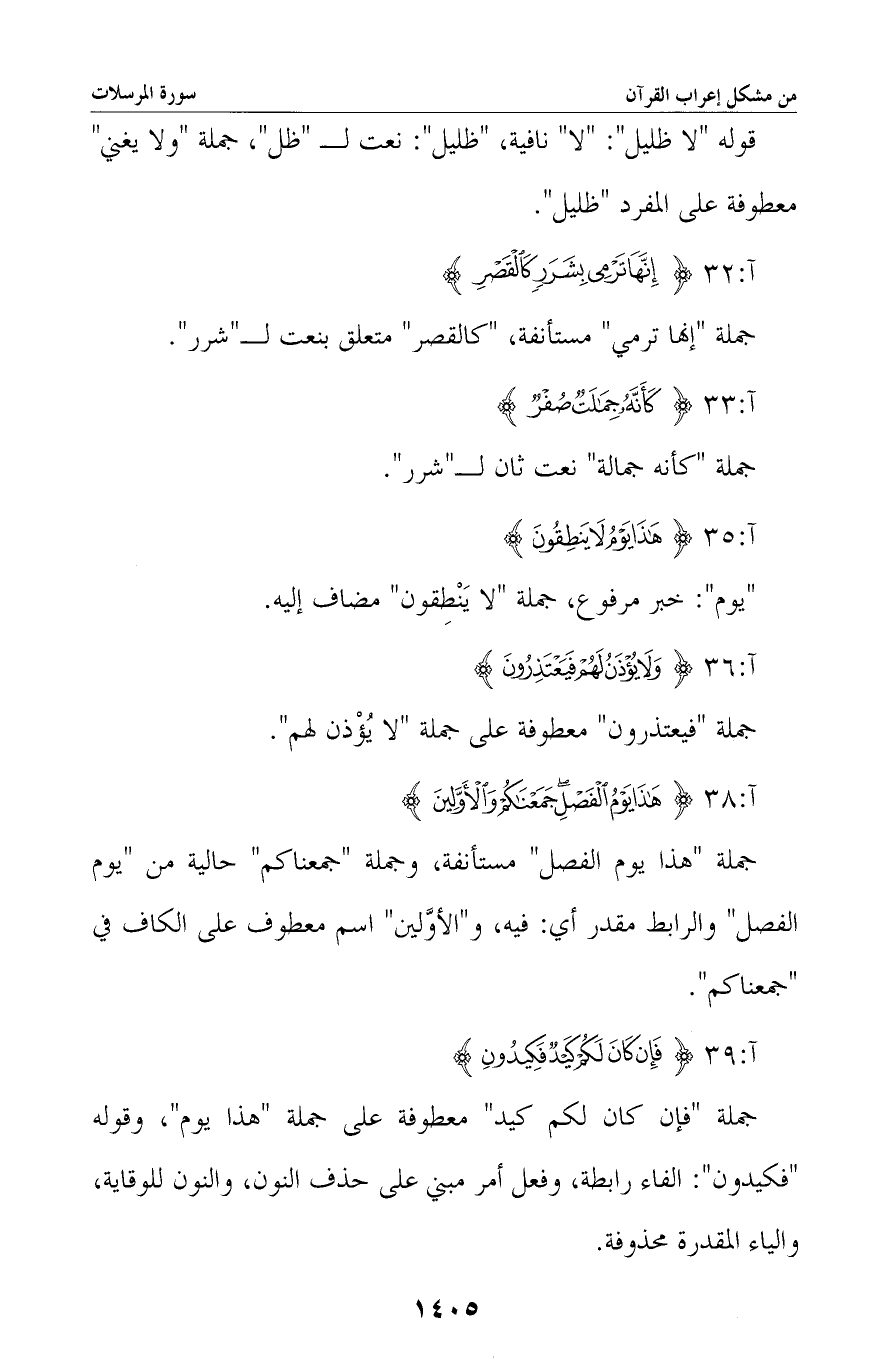 من مشكل إعراب القرآن
سورة المرسلات
قوله "لا ظليل": "لا" نافية، "ظليل": نعت لـ "ظل"، جملة "ولا يغني"
معطوفة على المفرد "ظليل".
آ:٣٢ ﴿ إِنَّهَا تَرْمِي بِشَرَرٍ كَالْقَصْرِ ﴾
جملة "إنها ترمي" مستأنفة، "كالقصر" متعلق بنعت لـ"شرر".
آ:٣٣ ﴿ كَأَنَّهُ جِمَالَتٌ صُفْرٌ ﴾
جملة "كأنه جمالة" نعت ثان لـ"شرر".
آ:٣٥ ﴿ هَذَا يَوْمُ لَا يَنطِقُونَ ﴾
"يوم": خبر مرفوع، جملة "لا يَنْطِقون" مضاف إليه.
آ:٣٦ ﴿ وَلَا يُؤْذَنُ لَهُمْ فَيَعْتَذِرُونَ ﴾
جملة "فيعتذرون" معطوفة على جملة "لا يُؤْذن لهم".
آ:٣٨ ﴿ هَذَا يَوْمُ الْفَصْلِ جَمَعْنَاكُمْ وَالْأَوَّلِينَ ﴾
جملة "هذا يوم الفصل" مستأنفة، وجملة "جمعناكم" حالية من "يوم
الفصل" والرابط مقدر أي: فيه، و"الأوَّلين" اسم معطوف على الكاف في
"جمعناكم".
آ:٣٩ ﴿ فَإِن كَانَ لَكُمْ كَيْدٌ فَكِيدُونِ ﴾
جملة "فإن كان لكم كيد" معطوفة على جملة "هذا يوم"، وقوله
"فكيدون": الفاء رابطة، وفعل أمر مبني على حذف النون، والنون للوقاية،
والياء المقدرة محذوفة.
١٤٠٥